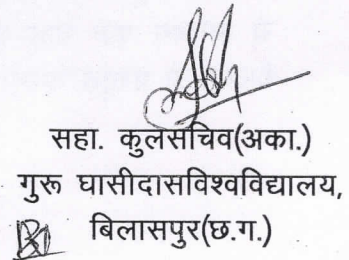 सहा. कुलसचिव(अका.)
गुरू घासीदासविश्वविद्यालय,
बिलासपुर(छ.ग.)